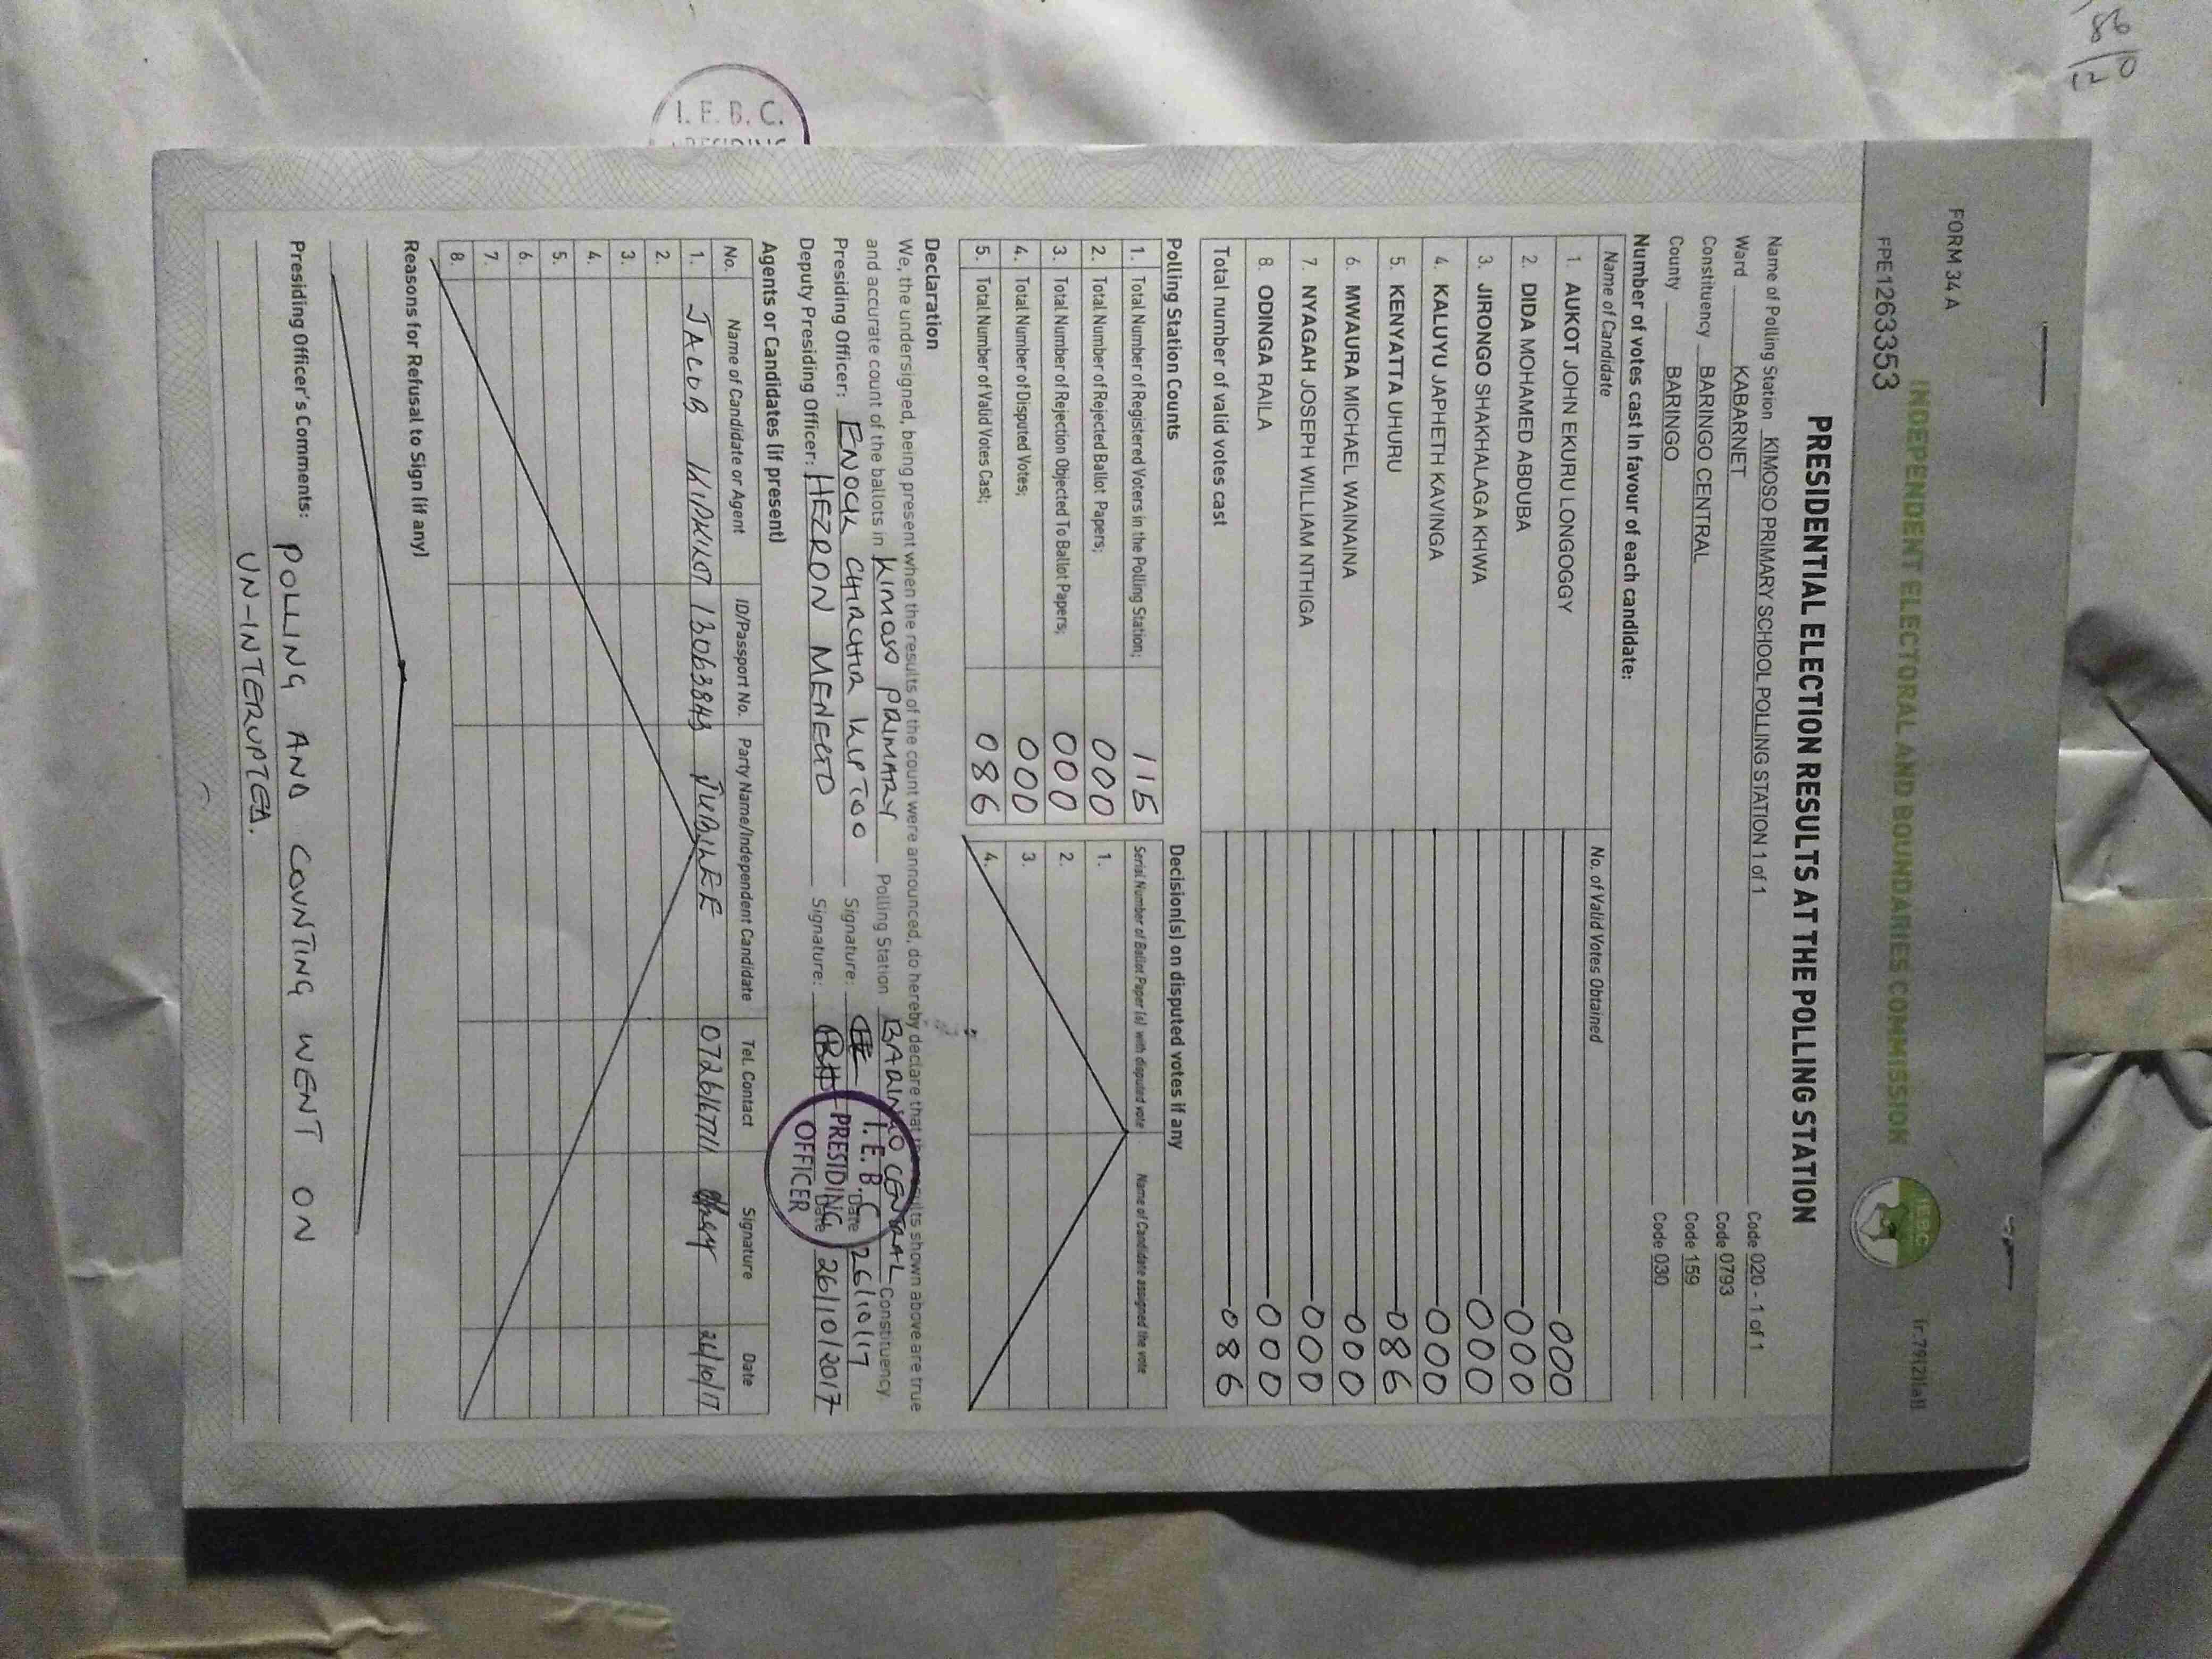 FORM 34 A
FPE1263353
INDEPENDENT ELECTORAL AND BOUNDARIES COMMISSION
IEBC
PRESIDENTIAL ELECTION RESULTS AT THE POLLING STATION
Name of Polling Station KIMOSO PRIMARY SCHOOL POLLING STATION 1 of 1 Code 020 - 1 of 1
Ward KABARNET Code 0793
Constituency BARINGO CENTRAL Code 159
County BARINGO Code 030
Number of votes cast in favour of each candidate:
Name of Candidate No. of Valid Votes Obtained
1. AUKOT JOHN EKURU LONGOGGY 000
2. DIDA MOHAMED ABDUBA 000
3. JIRONGO SHAKHALAGA KHWA 000
4. KALUYU JAPHETH KAVINGA 000
5. KENYATTA UHURU 086
6. MWAURA MICHAEL WAINAINA 000
7. NYAGAH JOSEPH WILLIAM NTHIGA 000
8. ODINGA RAILA 000
Total number of valid votes cast 086
Polling Station Counts
1. Total Number of Registered Voters in the Polling Station; 115
2. Total Number of Rejected Ballot Papers; 000
3. Total Number of Rejection Objected To Ballot Papers; 000
4. Total Number of Disputed Votes; 000
5. Total Number of Valid Votes Cast; 086
Decision(s) on disputed votes if any
Serial Number of Ballot Paper (s) with disputed vote Name of Candidate assigned the vote
1.
2.
3.
4.
Declaration
We, the undersigned, being present when the results of the count were announced, do hereby declare that the results shown above are true
and accurate count of the ballots in KIMOSO PRIMARY Polling Station BARINGO CENTRAL Constituency.
Presiding Officer: ENOCK CHIRCHIR KIPTOO Signature: Date 26/10/17
Deputy Presiding Officer: HEZRON Signature: Date 26/10/2017
I.E.B.C
PRESIDING
OFFICER
Agents or Candidates (if present)
No. Name of Candidate or Agent ID/Passport No. Party Name/Independent Candidate Tel. Contact Signature Date
1. JACOB JUBILEE 26/10/17
2.
3.
4.
5.
6.
7.
8.
Reasons for Refusal to Sign (if any)
Presiding Officer's Comments: POLLING AND COUNTING WENT ON
UN-INTERUPTED.
I.E.B.C.